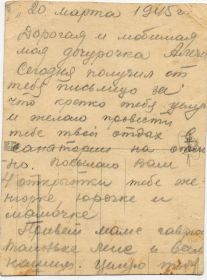 20 марта 1945 г.
Дорогая и любимая
моя дочурочка
Сегодня получил от
тебя письмецо за
что крепко тебя целую
и желаю провести
тебе твой отдых в
санатории на отлич
но. посылаю вам
4 открытки тебе же
нюрке юрочке и
мамочке
Привет маме
и всем
нашим. Целую тебя